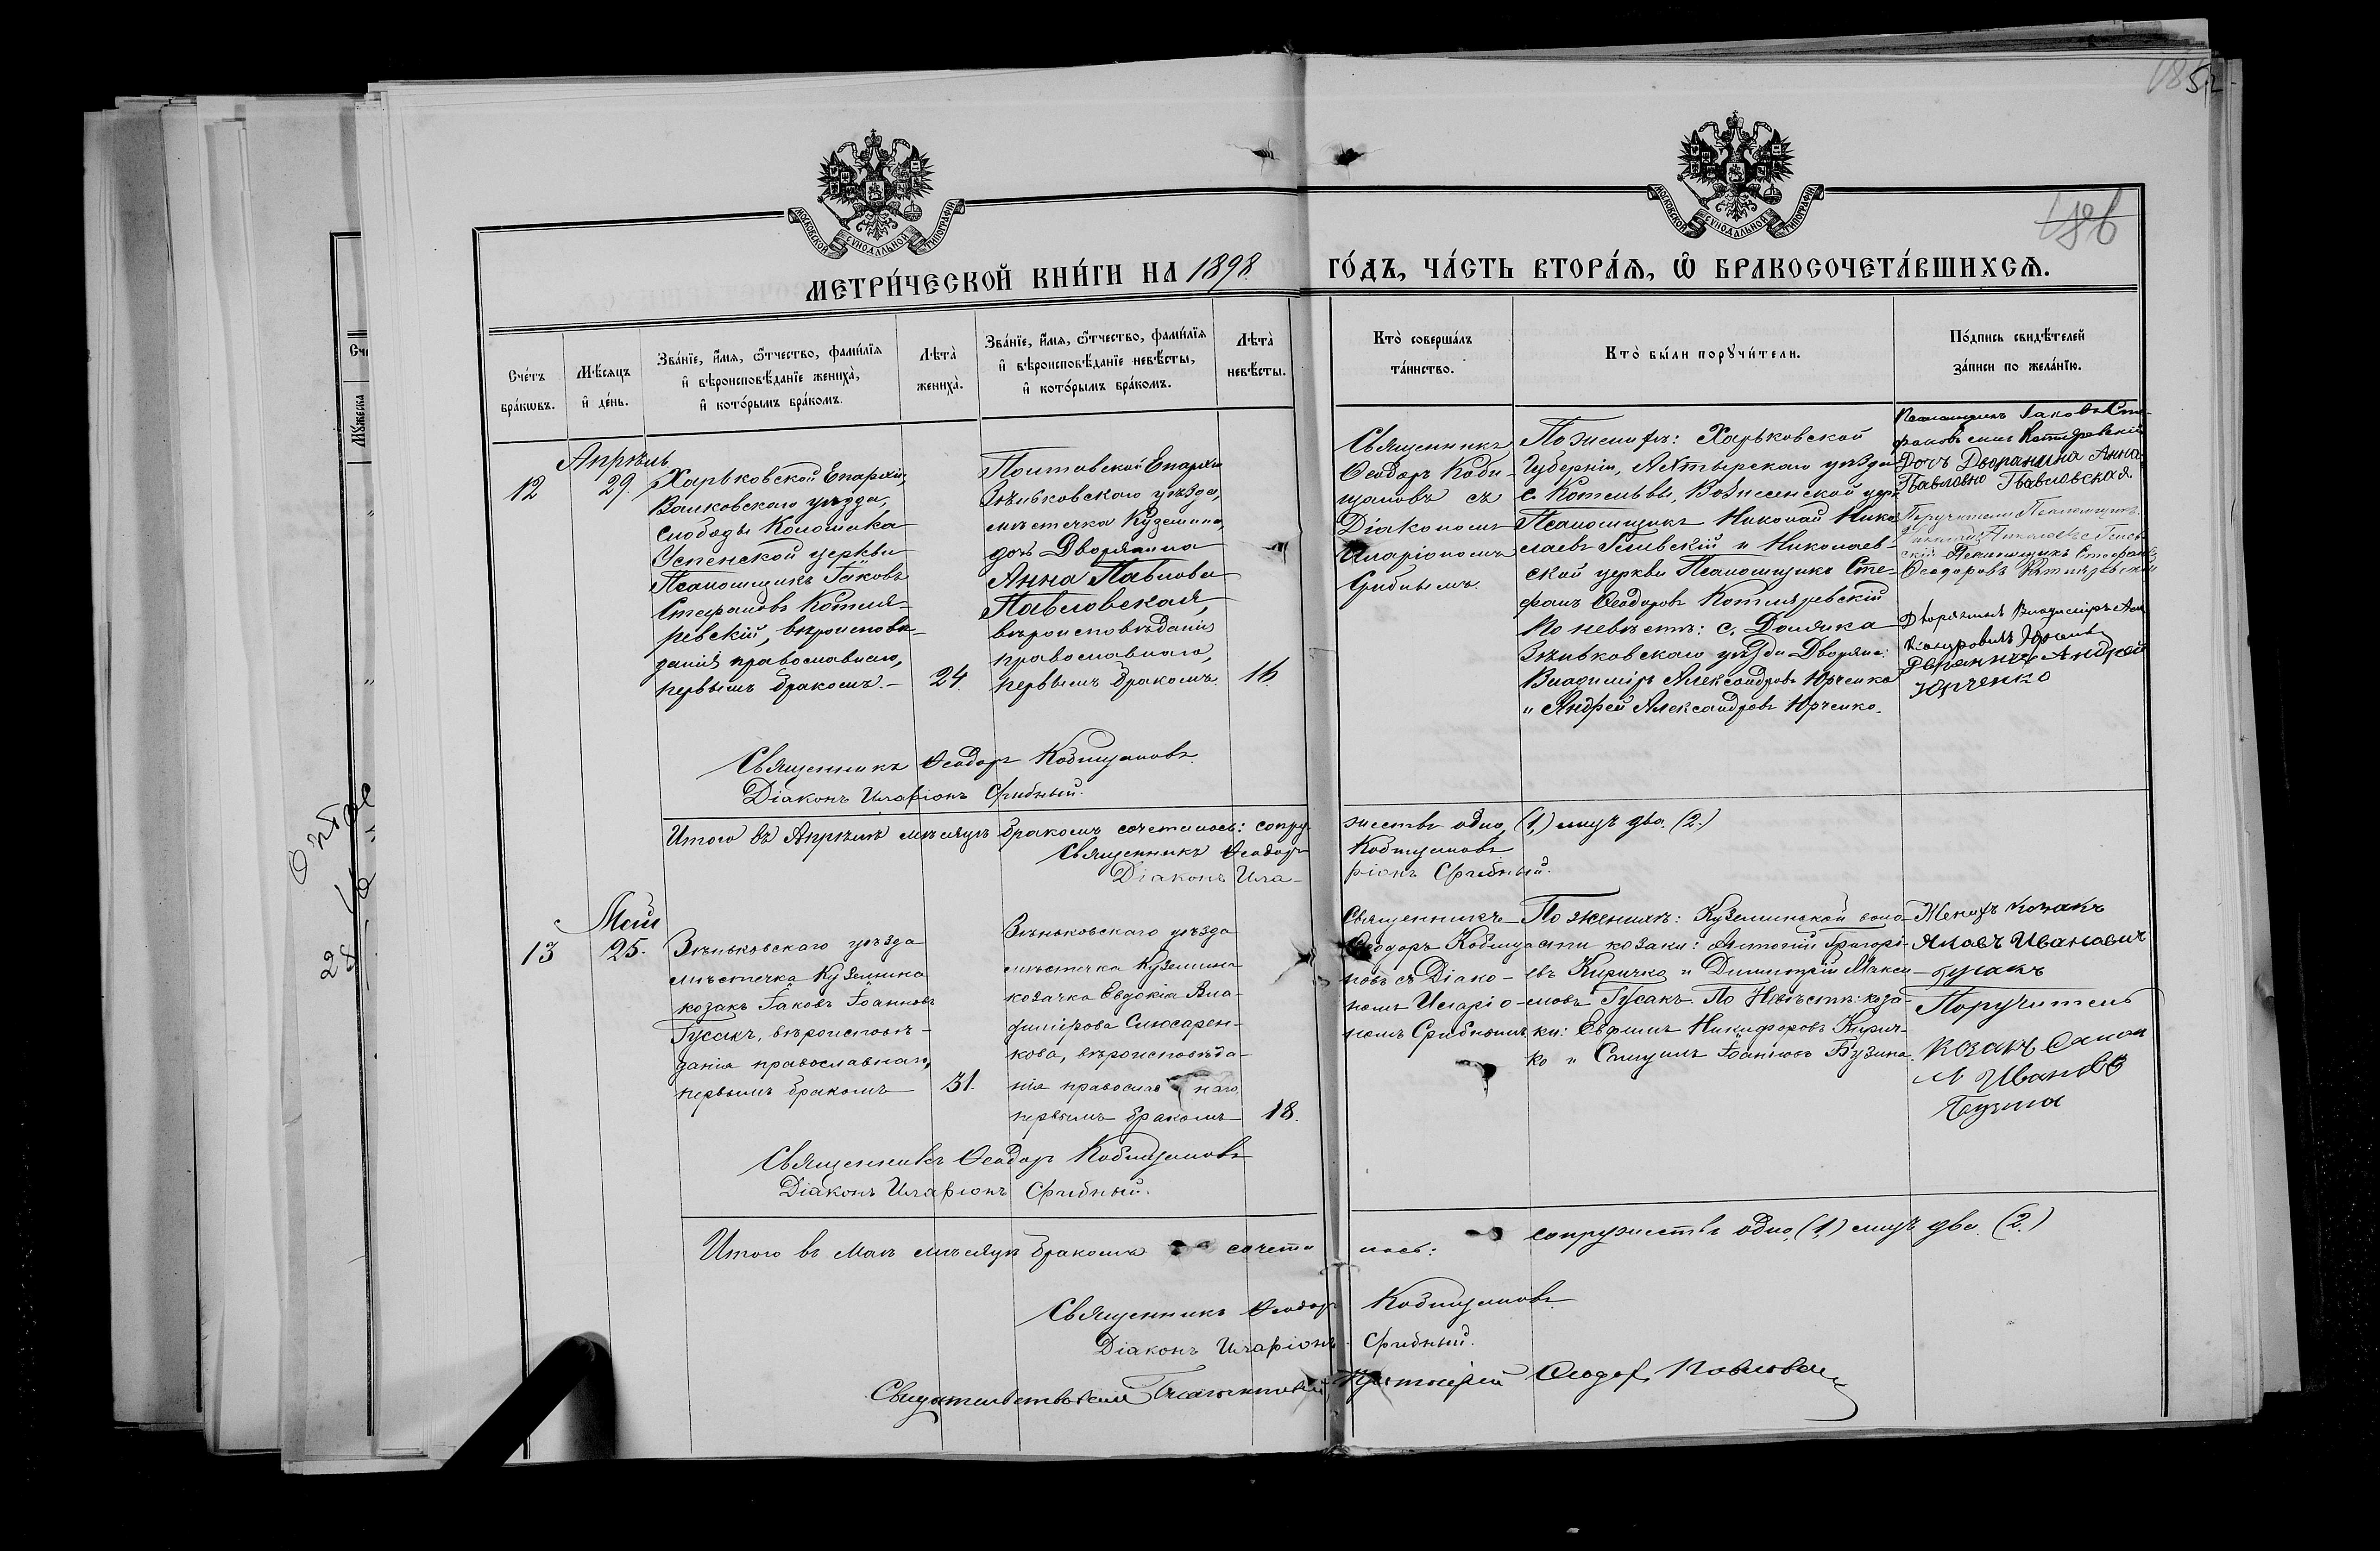 185
52
186
МОСКОВСКОЙ СѴНОДАЛЬНОЙ ТИПОГРАФІИ
МОСКОВСКОЙ СѴНОДАЛЬНОЙ ТИПОГРАФІИ
МЕТРИ́ЧЕСКОЙ КНИ́ГИ НА 1898 ГО́ДЪ, ЧА́СТЬ ВТОРА́Ѧ, Ѿ БРАКОСОЧЕТА́ВШИХСѦ.
Сче́тъ бра́кωвъ.
Мѣ́сяцъ и҆ де́нь.
Зва́нїе, и҆́мѧ, ѻ҆́тчество, фами́лїѧ и҆ вѣроисповѣ́данїе жениха̀, и҆ кото́рымъ бра́комъ.
Лѣта̀ жениха̀.
Зва́нїе, и҆́мѧ, ѻ҆́тчество, фами́лїѧ и҆ вѣроисповѣ́данїе невѣ́сты, и҆ кото́рымъ бра́комъ.
Лѣта̀ невѣ́сты.
Кто̀ соверша́лъ та́инство.
Кто̀ бы́ли порꙋчи́тели.
По́дпись свидѣ́телей за́писи по жела́нїю.
12
Апрѣль
29.
Харьковской Епархіи,
Валковскаго уѣзда,
слободы Коломака
Успенской церкви
Псаломщикъ Іаковъ
Стефановъ Котля-
ревскій, вѣроиспове-
данія православнаго,
первымъ бракомъ.-
24.
Полтавской Епархіи
Зѣньковскаго уѣзда,
мѣстечка Куземина,
дочь Дворянина
Анна Павлова
Павловская,
вѣроисповѣданія
православнаго,
первымъ бракомъ.
16.
Священникъ
Ѳеодоръ Коби-
щановъ съ
Діакономъ
Иларіономъ
Срибнымъ.
По женихѣ: Харьковской
Губерніи, Ахтырскаго уѣзда
с. Котельвы, Вознесенской церк.
Псаломщикъ Николай Нико-
лаевъ и Николаев-
ской церкви Псаломщикъ Сте-
фанъ Ѳеодоровъ Котляревскій
По невѣстѣ: с.
Зѣньковскаго уѣзда Дворяне:
Владиміръ Александровъ Юрченко
и Андрей Александровъ Юрченко.
Псаломщикъ Іаковъ Сте-
фановъ сынъ Котляревскій
Дочь Дворянина Анна
Павловна Павловская
Поручители Псаломщикъ
Николай Николаевъ
скій Псаломщикъ Стефанъ
Ѳеодоровъ Котляревскій
Дворянинъ Владиміръ Алек
Дворянинъ Андрей
Юрченко
Священникъ Ѳеодоръ Кобищановъ
Діаконъ Иларіонъ Срибный.
Итого въ Апрѣлѣ мѣсяцѣ бракомъ сочеталось: супру- жествъ одно, (1,) лицъ два. (2.)
Священникъ Ѳеодоръ Кобищановъ
Діаконъ Ила- ріонъ Срибный.
13
Май
25.
Зѣньковскаго уѣзда
мѣстечка Куземина
козакъ Іаковъ Іоанновъ
Гусакъ, вѣроисповѣ-
данія православнаго,
первымъ бракомъ
31.
Зѣньковскаго уѣзда
мѣстечка Куземина
козачка Евдокія Вла-
димірова Слюсарен-
кова, вѣроисповѣда-
нія православнаго,
первымъ бракомъ
18.
Священникъ
Ѳеодоръ Кобища-
новъ съ Діако-
номъ Иларіо-
номъ Срибнымъ
По женихѣ: Куземинской воло-
сти козаки: Антоній Григорі-
евъ Киричко и Димитрій Макси-
мовъ Гусакъ. По Невѣстѣ: коза-
ки: Евфимъ Никифоровъ Кирич-
ко и Самуилъ Іоанновъ Бузина.
Женихъ козакъ
Яковъ Ивановичъ
Гусакъ
Поручитель
козакъ Самой
л Ивановъ
Бузина
Священникъ Ѳеодоръ Кобищановъ
Діаконъ Иларіонъ Срибный.
Итого въ Маѣ мѣсяцѣ бракомъ сочета лось: супружествъ одно, (1,) лицъ два. (2.)
Священникъ Ѳеодоръ Кобищановъ
Діаконъ Иларіонъ Срибный.
Свидѣтельствовалъ Протоіерей Ѳеодоръ